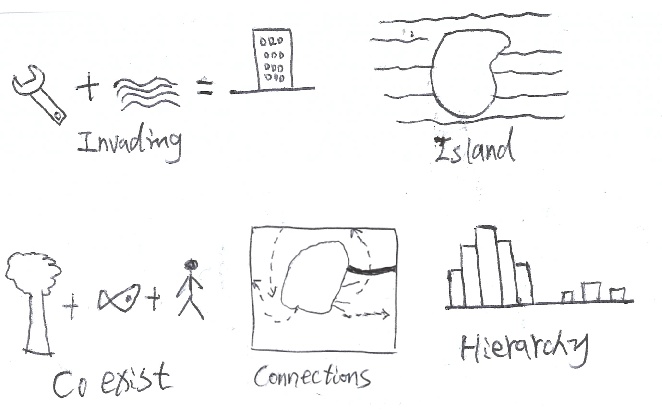 Invading
Island
Co exist
Connections
Hierarchy